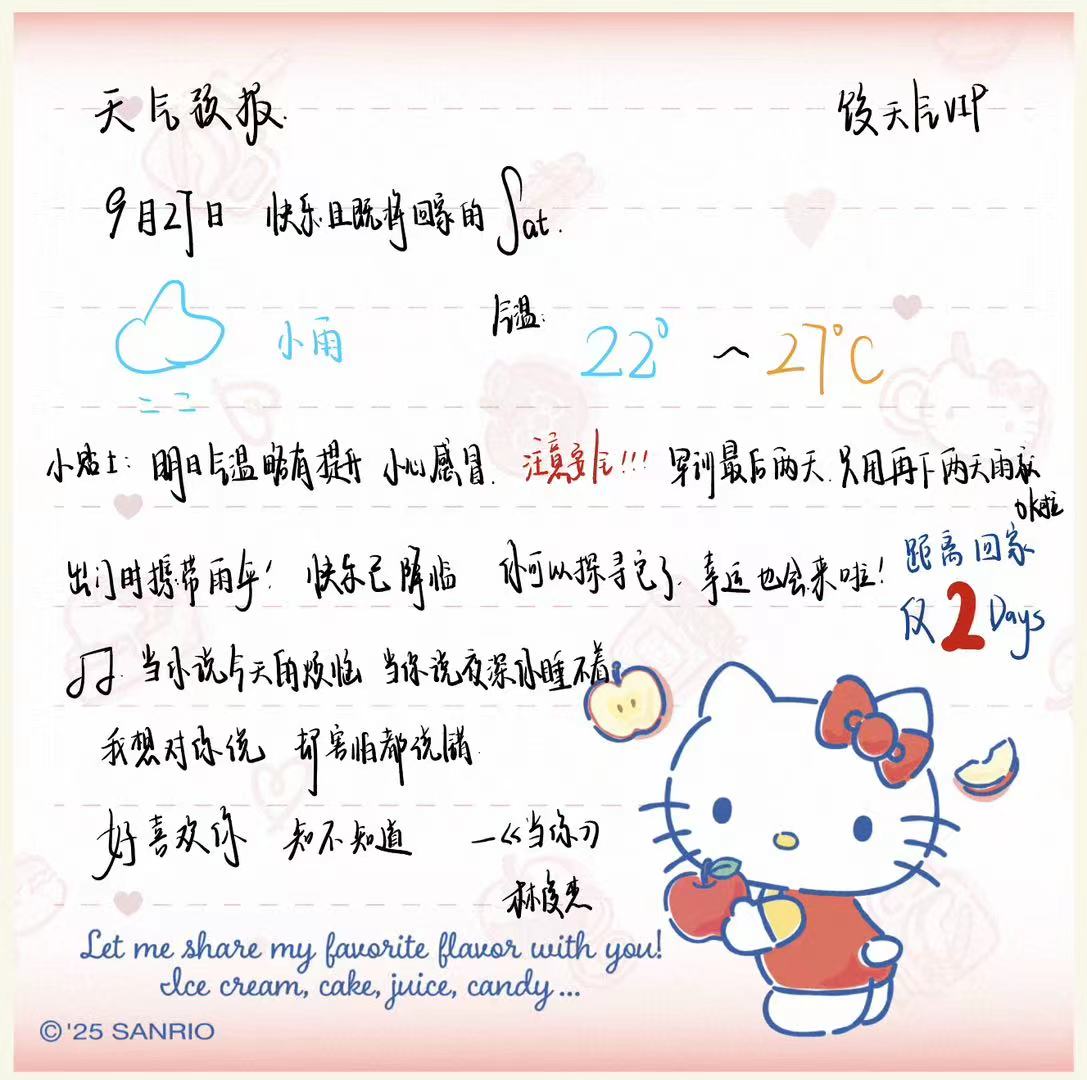 天气预报.
饺天气VIP
9月27日 快乐且既将回家的 Sat.
小雨
气温:
22° ~ 27°C
小贴士: 明日气温略有提升 小心感冒. 注意安全!!! 早训最后两天. 只用再下两天雨就
ok啦
出门时携带雨伞! 快乐已降临 你可以探寻它了. 幸运也会来啦!
距离回家
仅 2 Days
♫. 当你说今天的烦恼 当你说夜深你睡不着
我想对你说 却害怕都说错.
好喜欢你 知不知道 —《当你》
林俊杰
Let me share my favorite flavor with you!
Ice cream, cake, juice, candy...
©'25 SANRIO